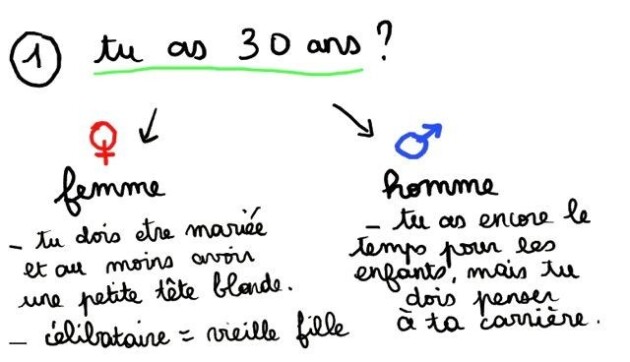 1 tu as 30 ans ?
femme
- tu dois etre mariée
et au moins avoir
une petite tête blonde.
- célibataire = vieille fille
homme
- tu as encore le
temps pour les
enfants, mais tu
dois penser
à ta carrière.